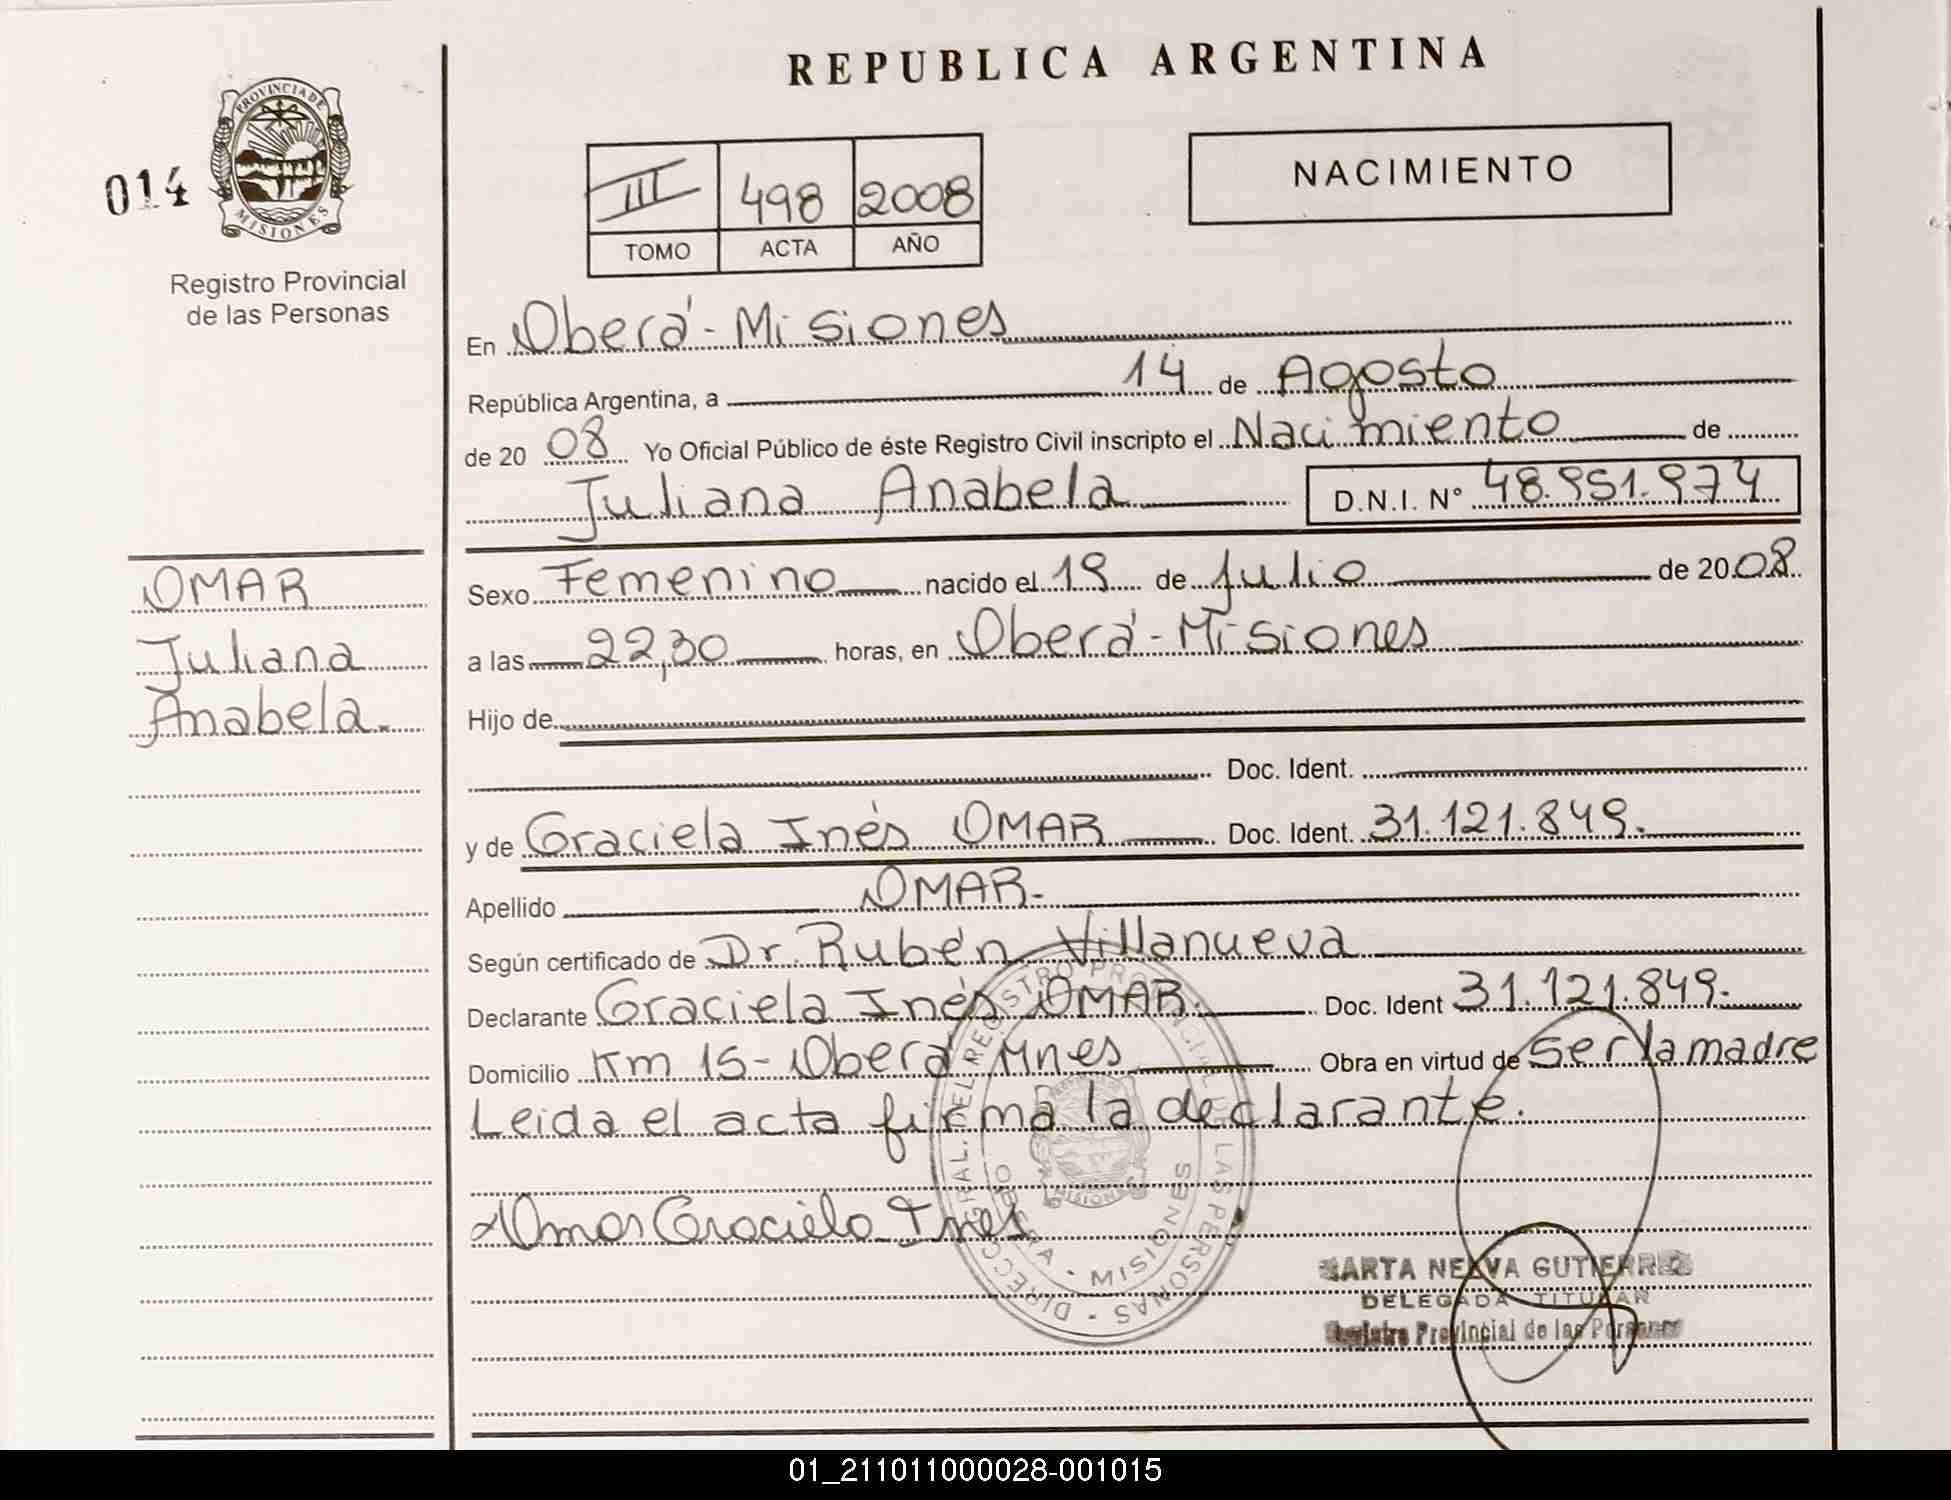 REPUBLICA ARGENTINA
PROVINCIA DE
MISIONES
014
Registro Provincial
de las Personas
III 498 2008
TOMO ACTA AÑO
NACIMIENTO
En Oberá - Misiones
República Argentina, a 14 de Agosto
de 20 08 Yo Oficial Público de éste Registro Civil inscripto el Nacimiento de
Juliana Anabela D.N.I. N° 48.951.974
OMAR
Juliana
Anabela.
Sexo Femenino nacido el 19 de Julio de 20 08
a las 22,30 horas, en Oberá - Misiones
Hijo de
Doc. Ident.
y de Graciela Inés OMAR Doc. Ident. 31.121.849.
Apellido OMAR-
Según certificado de Dr. Rubén Villanueva
Declarante Graciela Inés OMAR. Doc. Ident 31.121.849.
Domicilio Km 15 - Oberá Mnes Obra en virtud de ser la madre
Leida el acta firma la declarante.
Omar Graciela Ines
DIRECC. GRAL. DEL REGISTRO PROVINCIAL DE LAS PERSONAS
OBERA - MISIONES
MISIONES
MARTA NELVA GUTIERREZ
DELEGADA TITULAR
Registro Provincial de las Personas
01_211011000028-001015